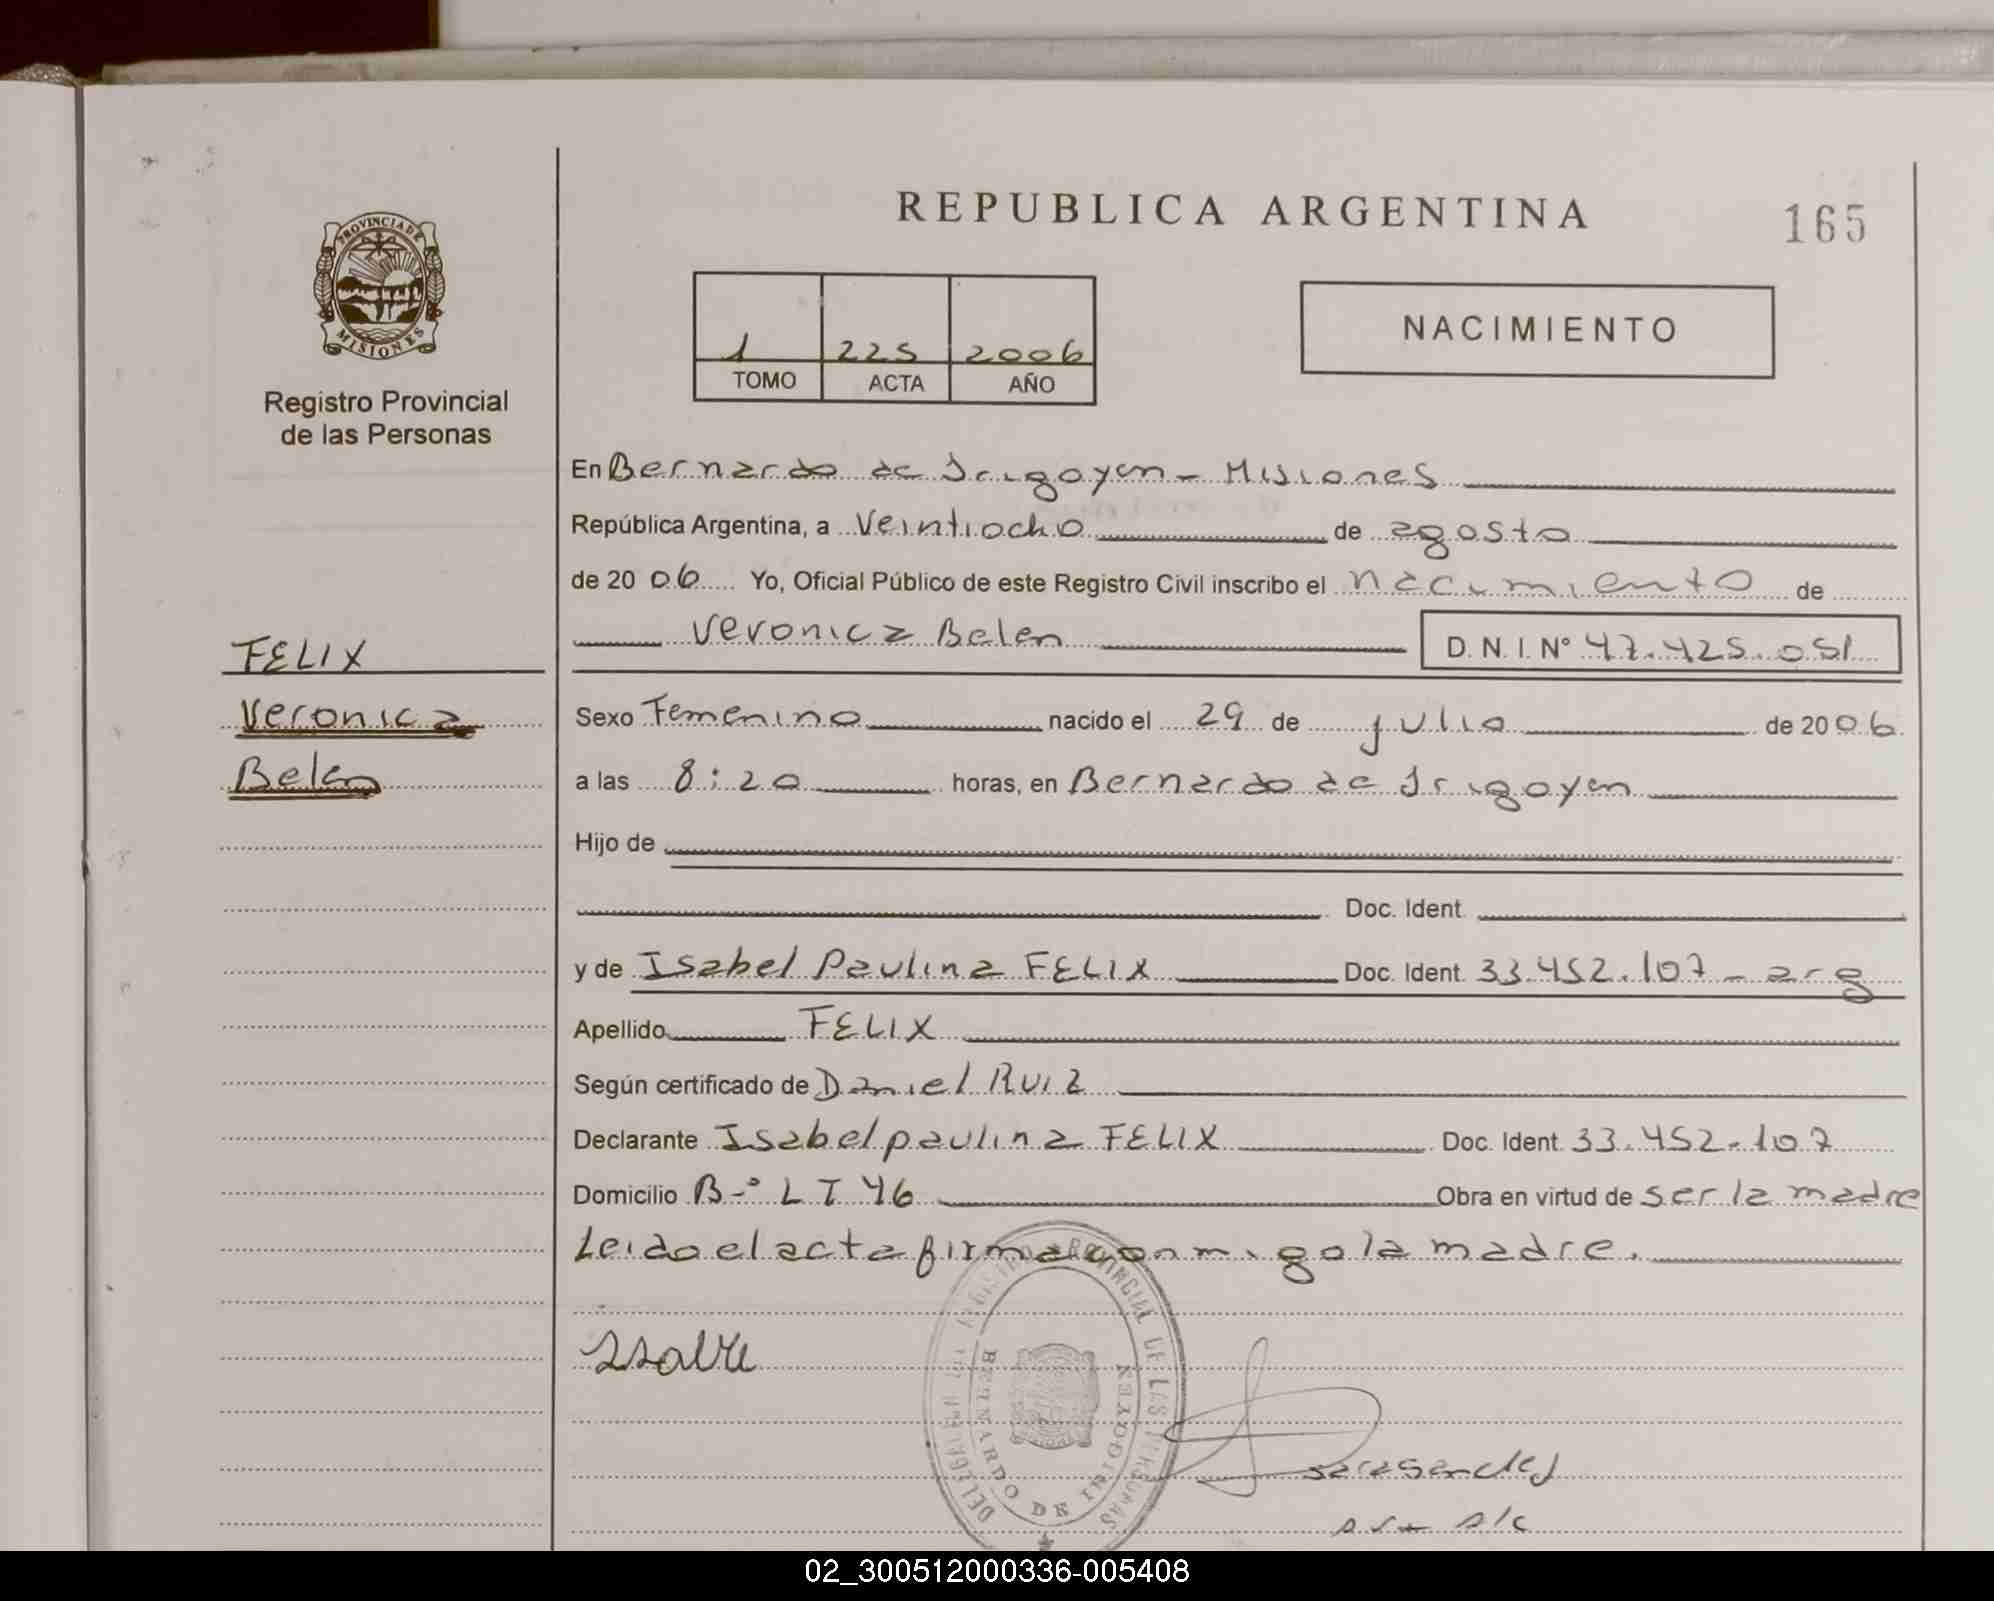 REPUBLICA ARGENTINA
165
PROVINCIA DE
MISIONES
Registro Provincial
de las Personas
1 225 2006
TOMO ACTA AÑO
NACIMIENTO
En Bernardo de Irigoyen - Misiones
República Argentina, a Veintiocho de agosto
de 20 06 Yo, Oficial Público de este Registro Civil inscribo el nacimiento de
Veronica Belen D. N. I. Nº 47.425.051
FELIX
Veronica
Belen
Sexo Femenino nacido el 29 de julio de 20 06
a las 8:20 horas, en Bernardo de Irigoyen
Hijo de
Doc. Ident.
y de Isabel Paulina FELIX Doc. Ident. 33.452.107 - arg
Apellido FELIX
Según certificado de Daniel Ruiz
Declarante Isabel paulina FELIX Doc. Ident. 33.452.107
Domicilio B-º L T 46 Obra en virtud de ser la madre
Leido el acta firma conmigo la madre.
DELEGACION DEL REGISTRO PROVINCIAL DE LAS PERSONAS
BERNARDO DE IRIGOYEN
02_300512000336-005408